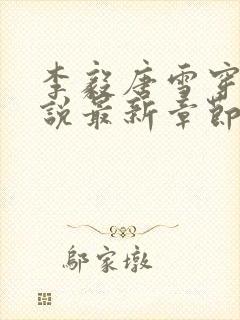 李毅唐雪穿
說最新章節
鄔家墩